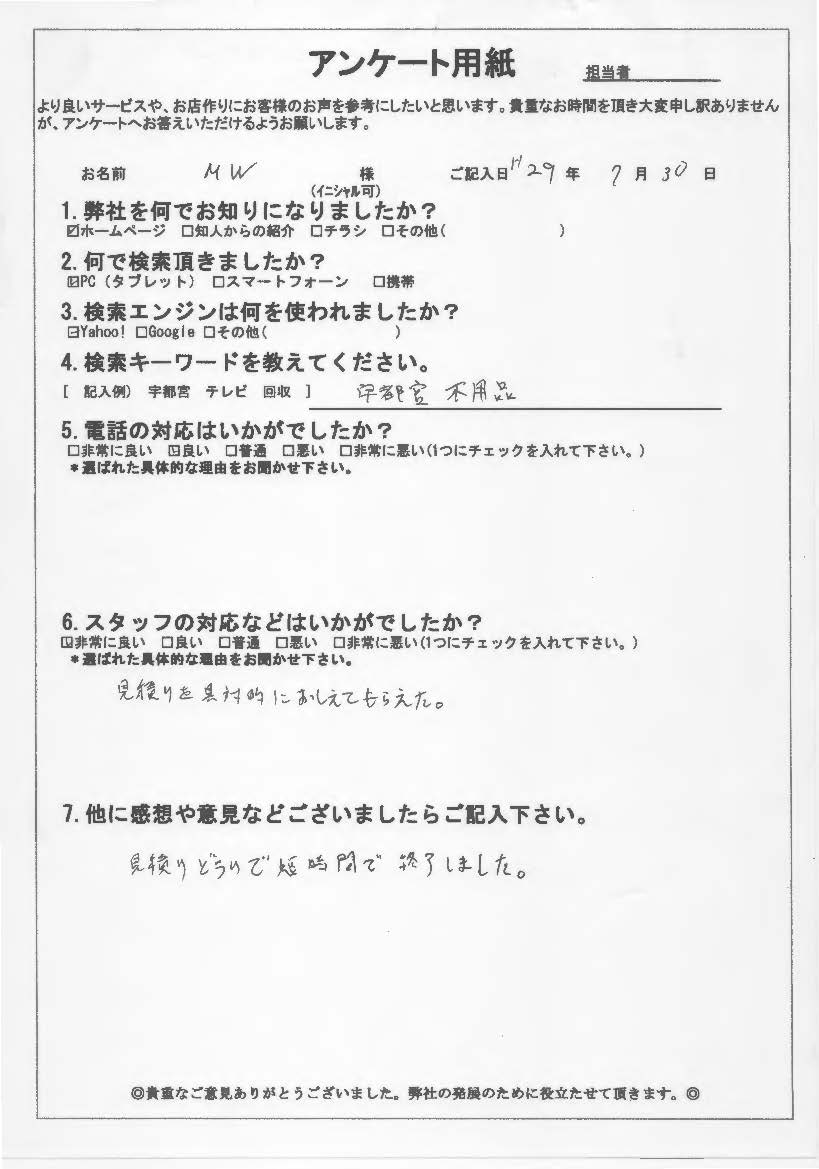 アンケート用紙
担当者
より良いサービスや、お店作りにお客様のお声を参考にしたいと思います。貴重なお時間を頂き大変申し訳ありません
が、アンケートへお答えいただけるようお願いします。
お名前 MW 様 ご記入日 H29 年 7 月 30 日
(イニシャル可)
1. 弊社を何でお知りになりましたか？
☑ホームページ □知人からの紹介 □チラシ □その他( )
2. 何で検索頂きましたか？
☑PC（タブレット） □スマートフォーン □携帯
3. 検索エンジンは何を使われましたか？
☑Yahoo! □Google □その他( )
4. 検索キーワードを教えてください。
[ 記入例） 宇都宮 テレビ 回収 ] 宇都宮 不用品
5. 電話の対応はいかがでしたか？
□非常に良い ☑良い □普通 □悪い □非常に悪い(1つにチェックを入れて下さい。)
＊選ばれた具体的な理由をお聞かせ下さい。
6. スタッフの対応などはいかがでしたか？
☑非常に良い □良い □普通 □悪い □非常に悪い(1つにチェックを入れて下さい。)
＊選ばれた具体的な理由をお聞かせ下さい。
見積りを具対的におしえてもらえた。
7. 他に感想や意見などございましたらご記入下さい。
見積りどうりで短時間で終了しました。
◎貴重なご意見ありがとうございました。弊社の発展のために役立たせて頂きます。◎